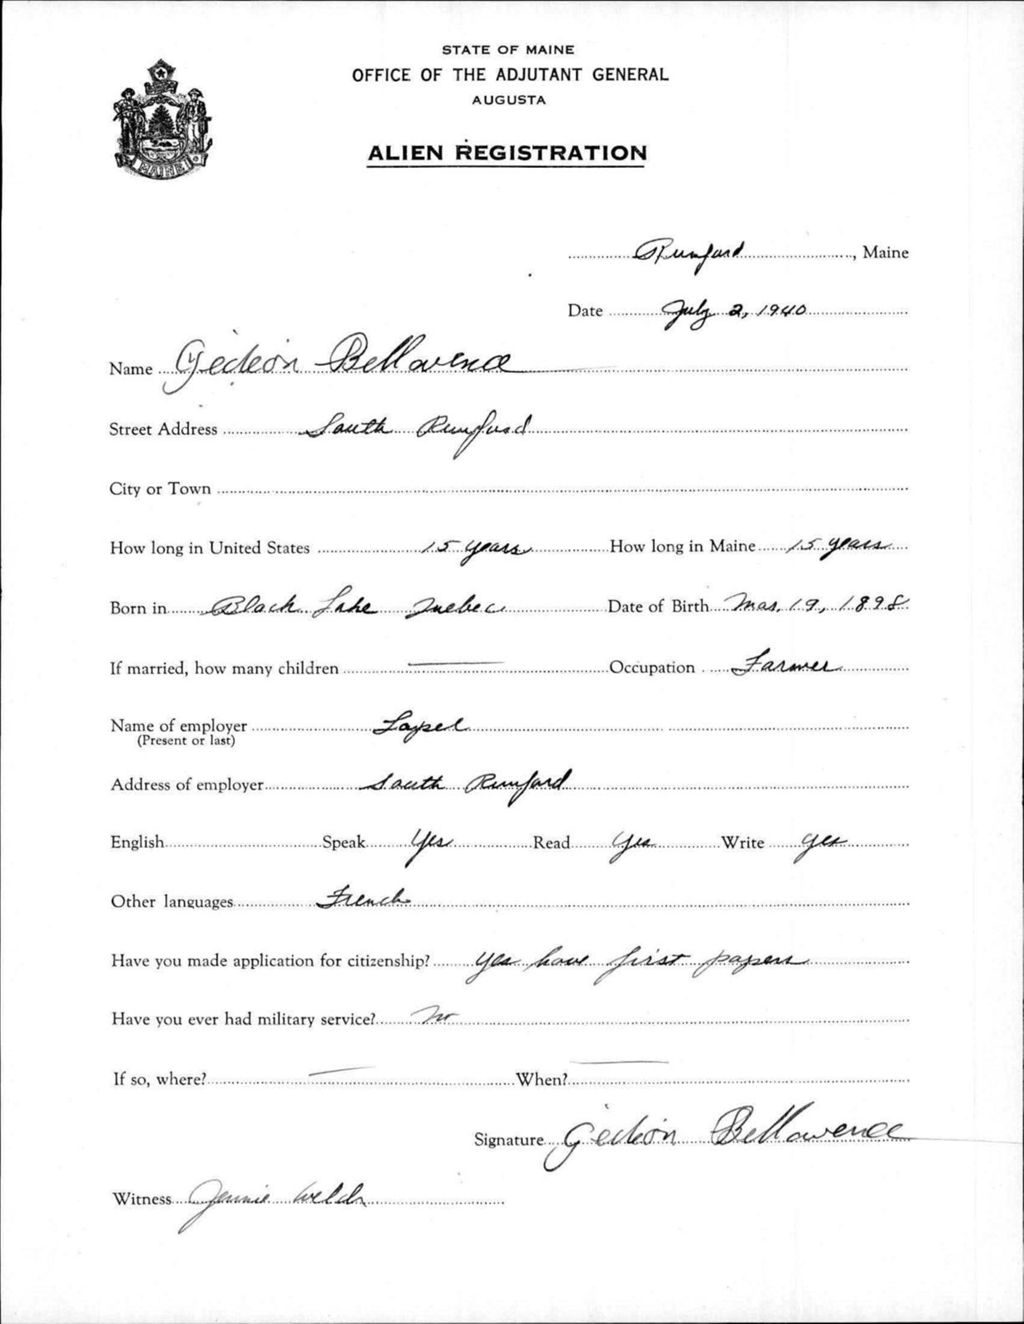 STATE OF MAINE
OFFICE OF THE ADJUTANT GENERAL
AUGUSTA
ALIEN REGISTRATION
MAINE
Rumford, Maine
Date July 2, 1940
Name Gédéon Bellavence
Street Address South Rumford
City or Town
How long in United States 15 years How long in Maine 15 years
Born in Black Lake Quebec Date of Birth Mar. 19, 1898
If married, how many children — Occupation Farmer
Name of employer
(Present or last)
Address of employer South Rumford
English Speak Yes Read Yes Write yes
Other languages French
Have you made application for citizenship? yes have first papers
Have you ever had military service? No
If so, where? — When? —
Signature Gédéon Bellavence
Witness Jennie Welch